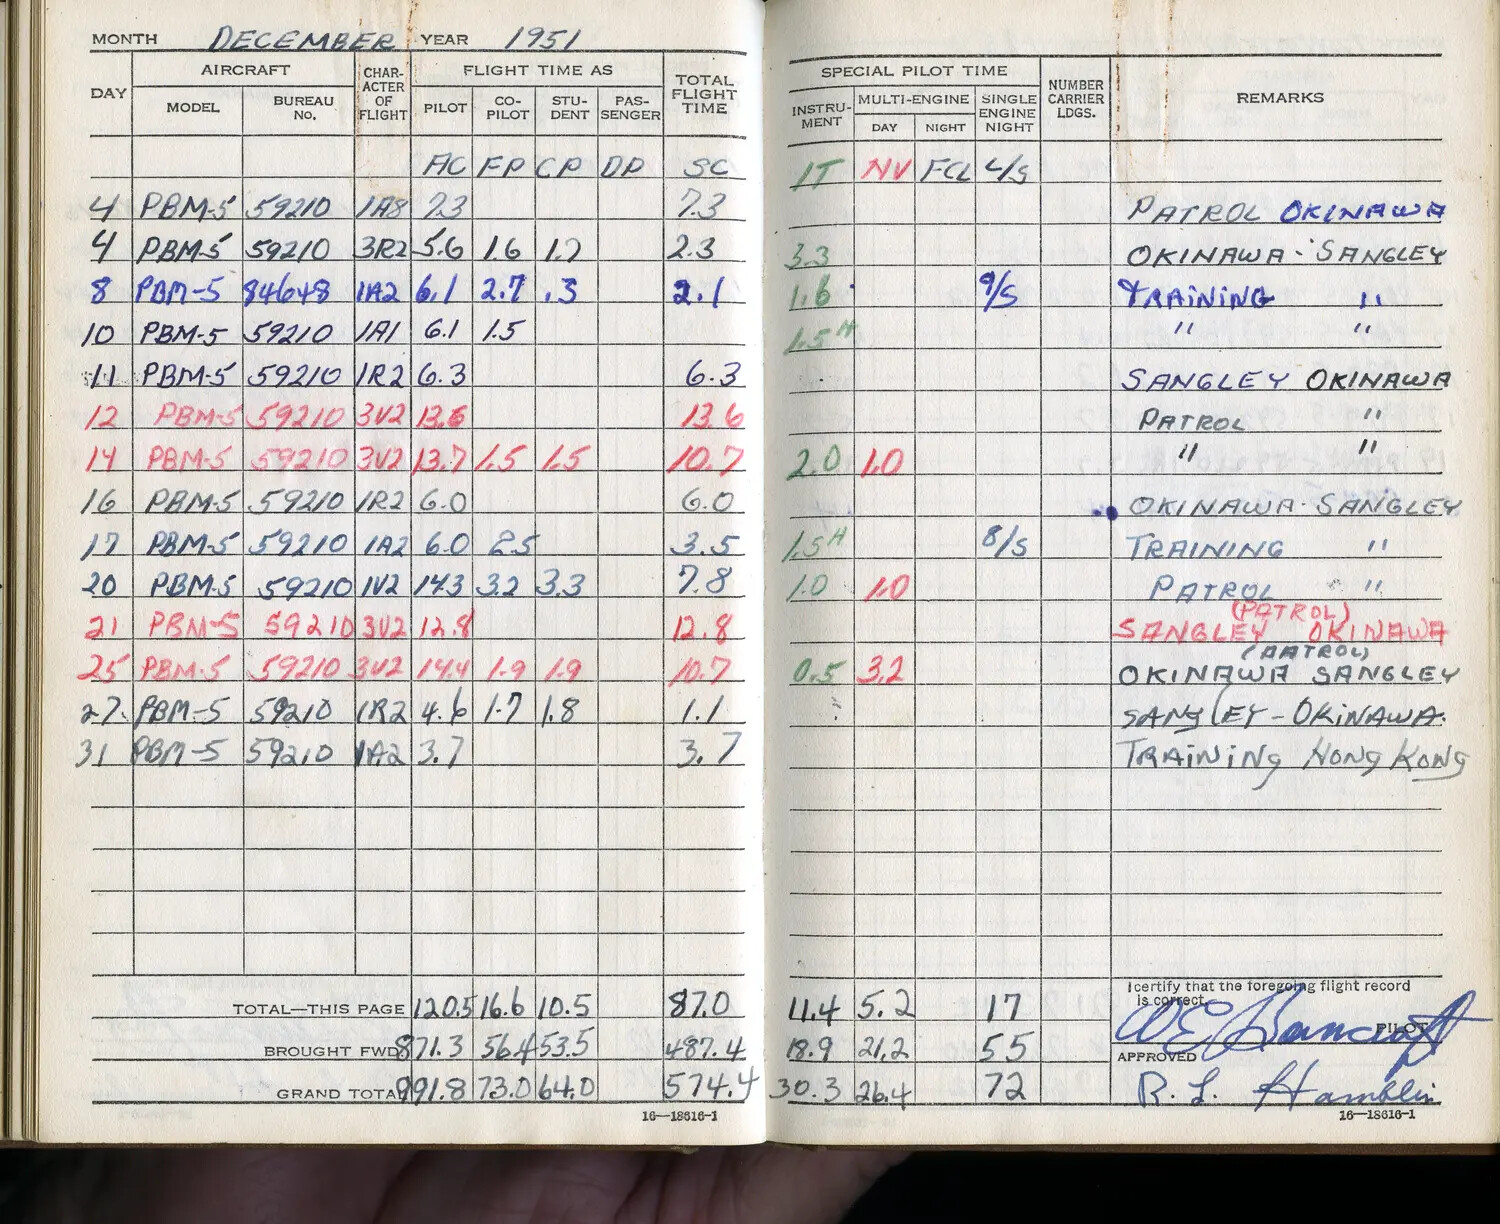 MONTH DECEMBER YEAR 1951
DAY AIRCRAFT CHARACTER OF FLIGHT FLIGHT TIME AS TOTAL FLIGHT TIME SPECIAL PILOT TIME NUMBER CARRIER LDGS. REMARKS
MODEL BUREAU No. PILOT CO-PILOT STUDENT PASSENGER INSTRUMENT MULTI-ENGINE SINGLE ENGINE NIGHT
DAY NIGHT
AC FP CP DP SC IT NV FCL L/S
4 PBM-5 59210 1A8 7.3 7.3 PATROL OKINAWA
4 PBM-5 59210 3R2 5.6 1.6 1.7 2.3 3.3 OKINAWA - SANGLEY
8 PBM-5 84648 1A2 6.1 2.7 .3 2.1 1.6 9/S TRAINING "
10 PBM-5 59210 1A1 6.1 1.5 1.5H " "
11 PBM-5 59210 1R2 6.3 6.3 SANGLEY OKINAWA
12 PBM-5 59210 3V2 13.6 13.6 PATROL "
14 PBM-5 59210 3V2 13.7 1.5 1.5 10.7 2.0 1.0 " "
16 PBM-5 59210 1R2 6.0 6.0 OKINAWA - SANGLEY
17 PBM-5 59210 1A2 6.0 2.5 3.5 1.5H 8/S TRAINING "
20 PBM-5 59210 1V2 14.3 3.2 3.3 7.8 1.0 1.0 PATROL "
21 PBM-5 59210 3V2 12.8 12.8 (PATROL) SANGLEY OKINAWA
25 PBM-5 59210 3V2 14.4 1.9 1.9 10.7 0.5 3.2 (PATROL) OKINAWA SANGLEY
27 PBM-5 59210 1R2 4.6 1.7 1.8 1.1 SANGLEY - OKINAWA.
31 PBM-5 59210 1A2 3.7 3.7 TRAINING HONG KONG
I certify that the foregoing flight record is correct.
TOTAL—THIS PAGE 120.5 16.6 10.5 87.0 11.4 5.2 17 W E Bancroft PILOT
BROUGHT FWD 871.3 56.4 53.5 487.4 18.9 21.2 55 APPROVED
GRAND TOTAL 991.8 73.0 64.0 574.4 30.3 26.4 72 R. L. Hamblin
16—18616-1 16—18616-1